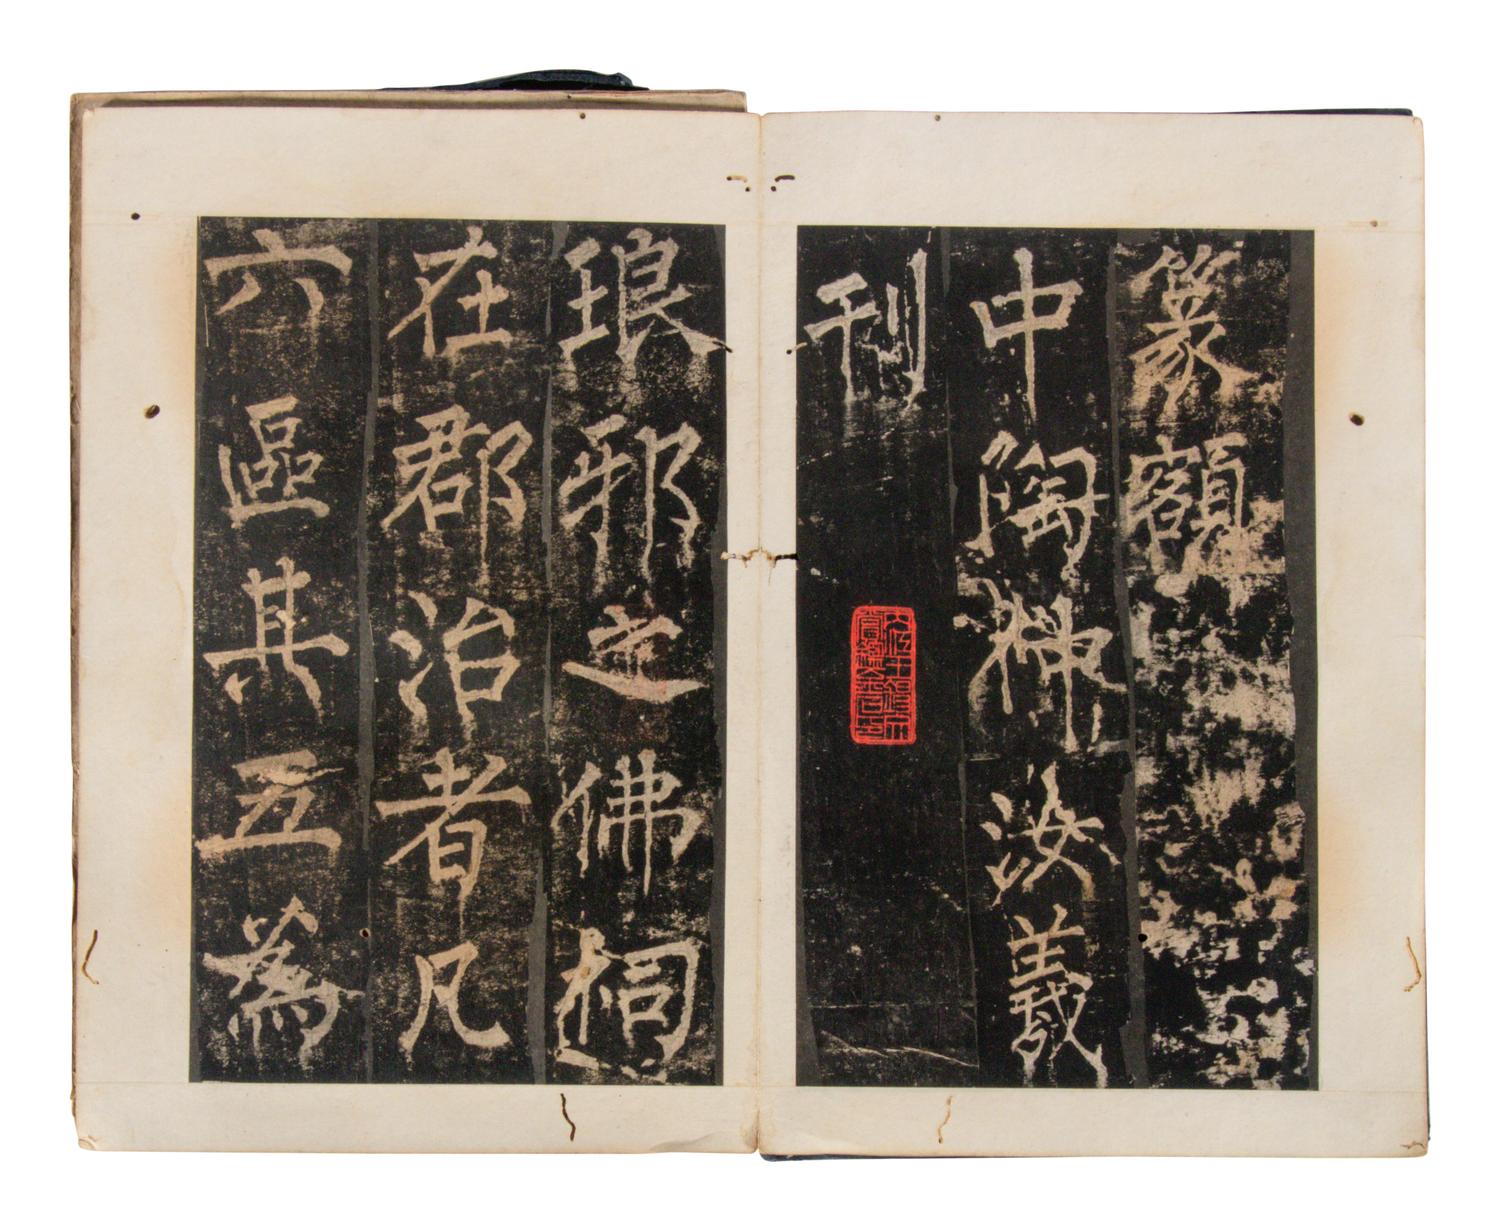 篆額
中陶神汝羲
刊
琅邪之佛祠
在郡治者凡
六區其五為